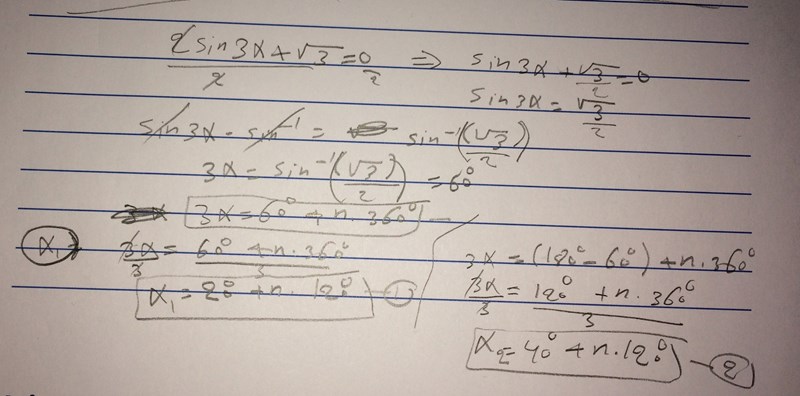 2sin3x+√3/2=0/2 ⇒ sin3x+√3/2=0
sin3x=√3/2
sin3x·sin⁻¹= sin⁻¹(√3/2)
3x=sin⁻¹(√3/2)=60°
3x=60°+n·360°
x₁→ 3x/3=60°+n·360°/3
x₁=20°+n·120° —①
3x=(180°-60°)+n·360°
3x/3=120°+n·360°/3
x₂=40°+n·120° —②